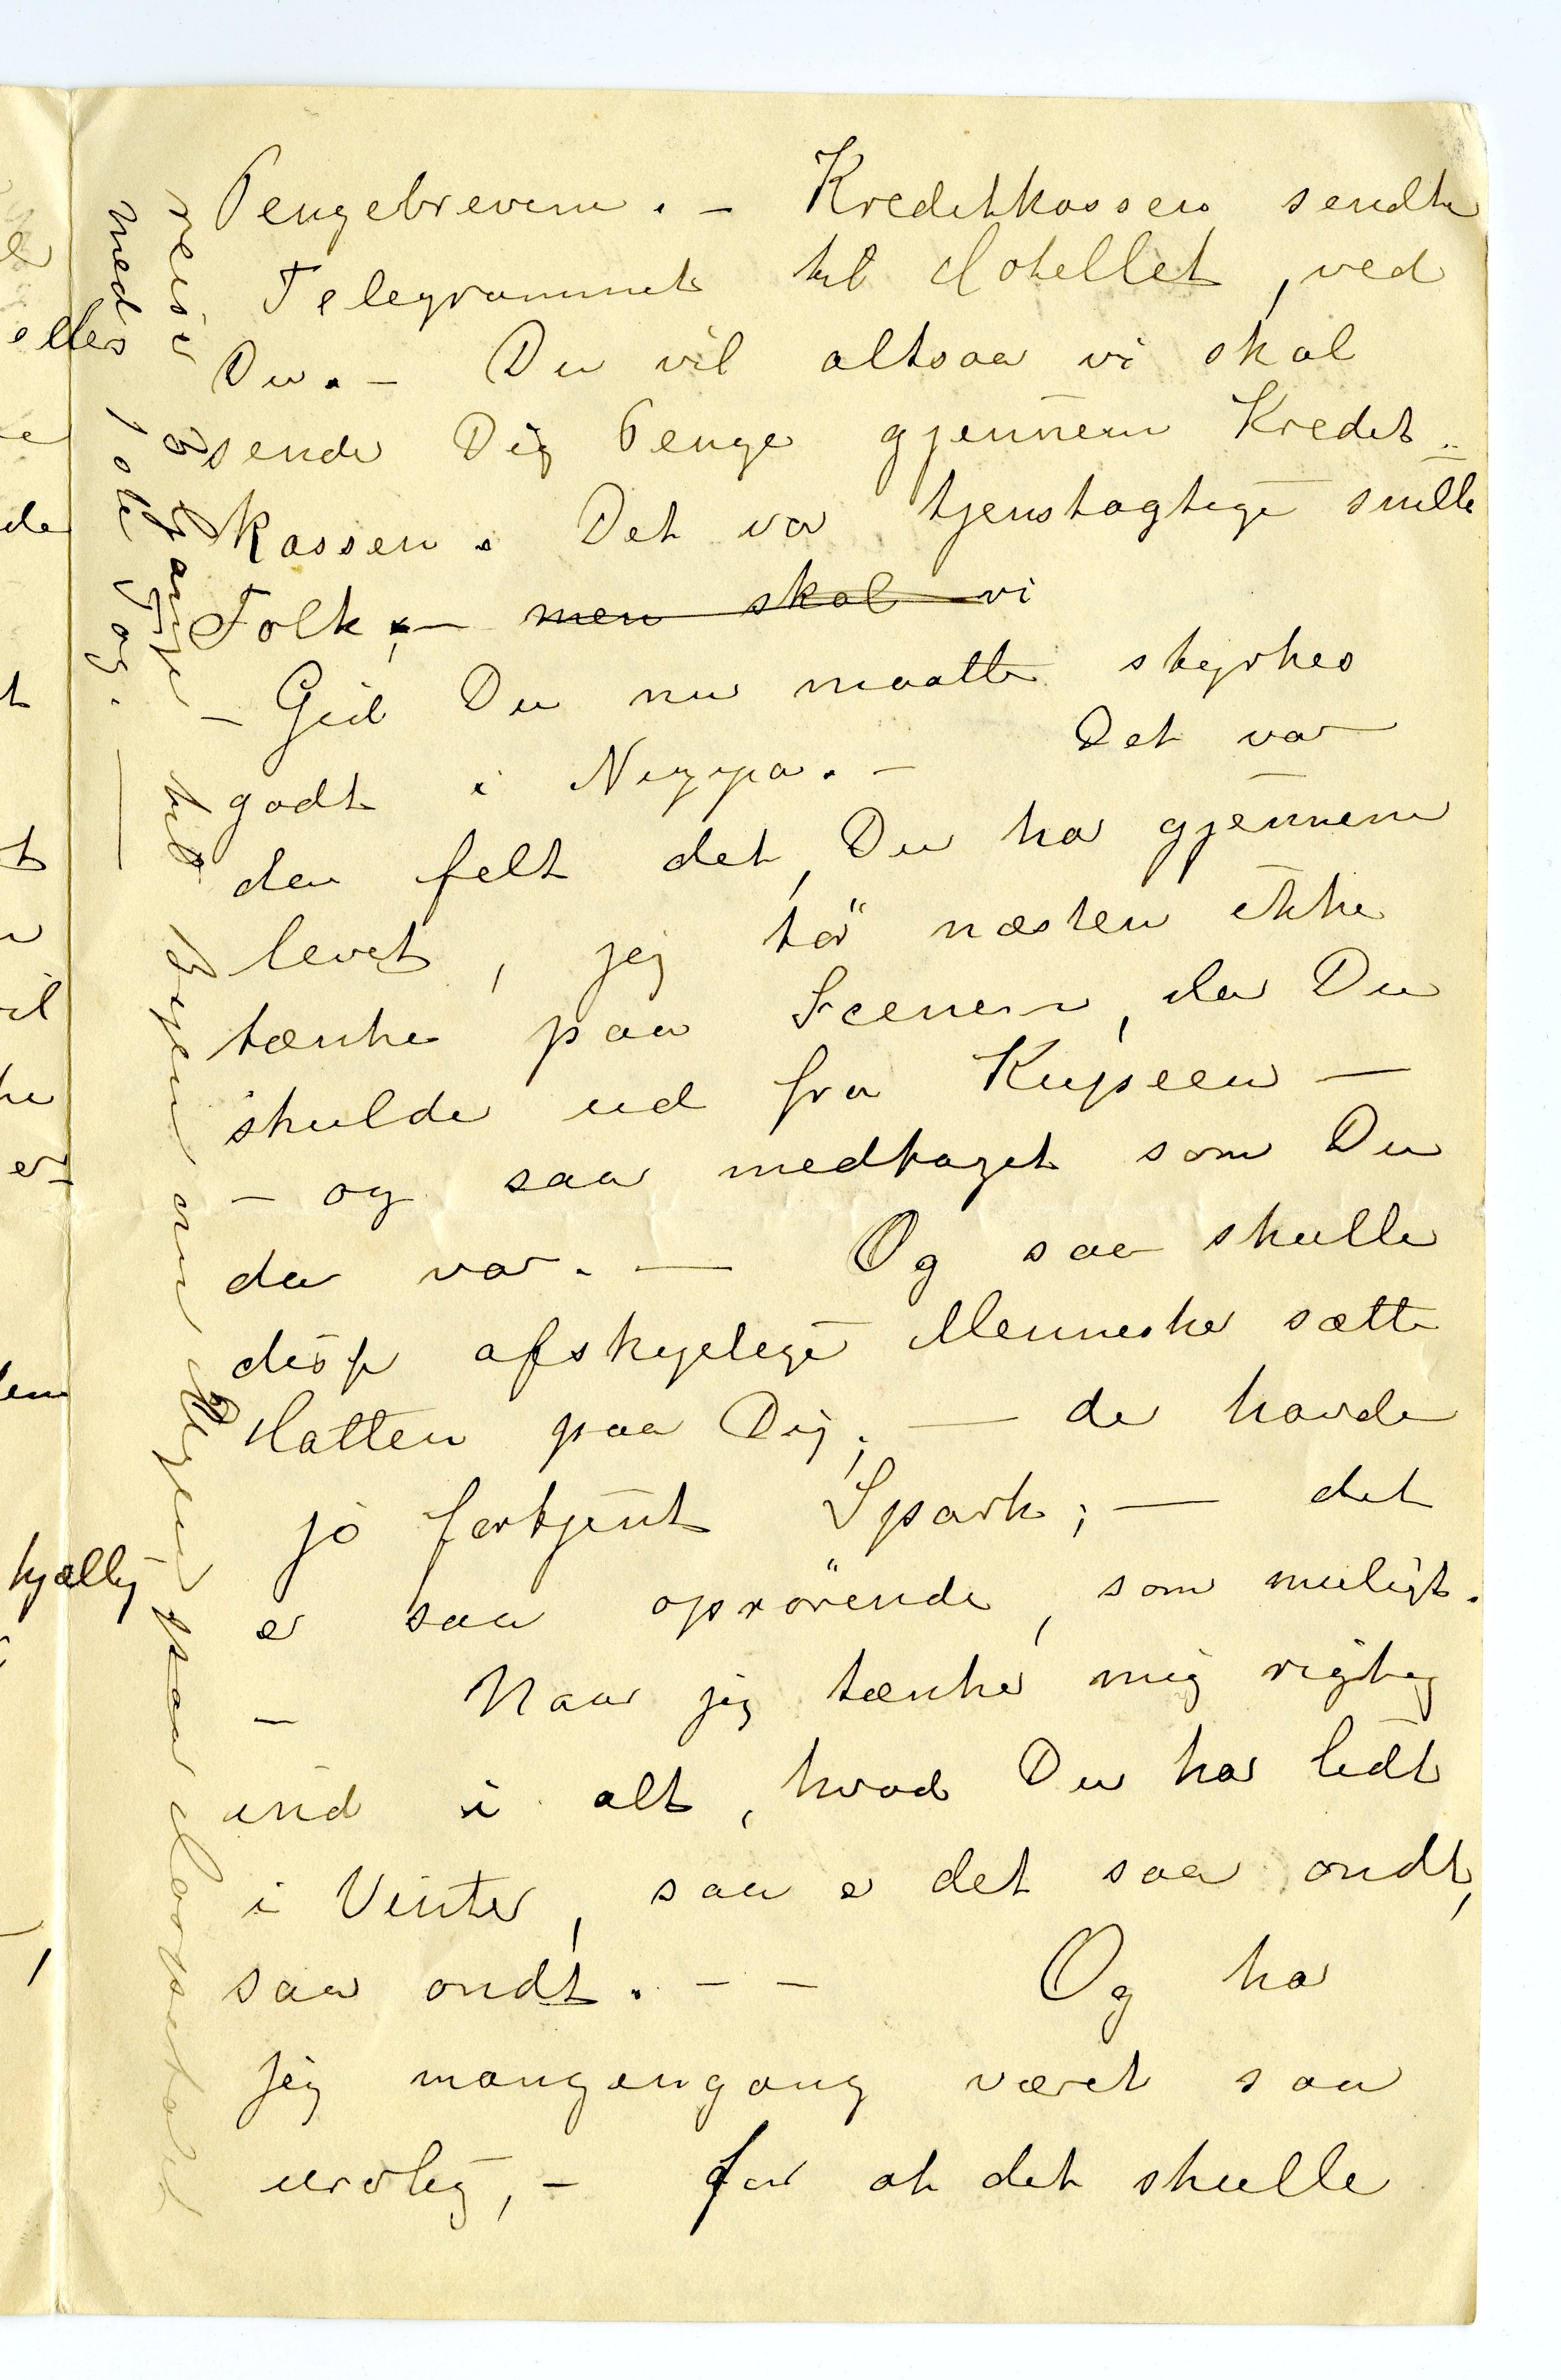 Pengebrevene. – Kreditkassen sendte
Telegrammet til Hotellet, ved
Du. – Du vil altsaa vi skal
sende Dig Penge gjennem Kredit-
kassen. Det var tjenstagtige snille
Folk, – men skal vi
– Gid Du nu maatte styrkes
godt i Nizza. – Det var
den felt det, Du har gjennem
levet, jeg tör næsten ikke
tænke paa Scenen, da Du
skulde ud fra Kupeen –
– og saa medtaget som Du
da var. – Og saa skulle
disse afskyelige Mennesker sætte
Hatten paa Dig; – de havde
jo fortjent Spark; – det
er saa oprörende, som muligt.
– Naar jeg tænker mig rigtig
ind i alt, hvad Du har lidt
i Vinter, saa er det saa ondt,
saa ondt. – – Og har
jeg mangengang været saa
urolig, – for at det skulle
reise 3 Gange til Byen om Dagen paa
med 1 ote Tog. –
eller
de
hjællig